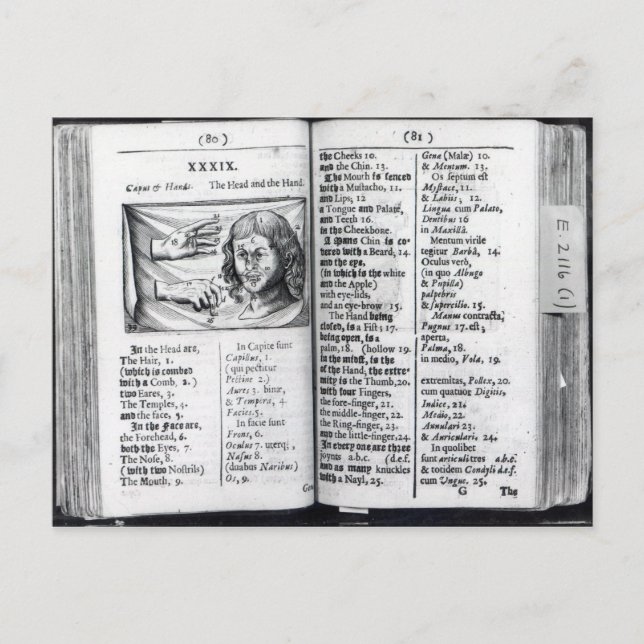 (80)
XXXIX.
Caput & Manus. The Head and the Hand.
In the Head are,
The Hair, 1.
(which is combed
with a Comb, 2.)
two Eares, 3.
The Temples, 4.
and the face, 5.
In the Face are,
the Forehead, 6.
both the Eyes, 7.
The Nose, 8.
(with two Nostrils)
The Mouth, 9.
In Capite sunt
Capillus, 1.
(qui pectitur
Pectine 2.)
Aures 3. binæ,
& Tempora, 4.
Facies 5.
In facie sunt
Frons, 6.
Oculus 7. uterq;
Nasus 8.
(duabus Naribus)
Os, 9.
(81)
the Cheeks 10.
and the Chin. 13.
The Mouth is fenced
with a Mustacho, 11.
and Lips; 12
a Tongue and Palate,
and Teeth 16
in the Cheekbone.
A Mans Chin is co-
vered with a Beard, 14.
and the eye.
(in which is the white
and the Apple)
with eye-lids,
and an eye-brow 15.
The Hand being
closed, is a Fist; 17
being open, is a
palm, 18. (hollow 19.
in the midst, is the
of the Hand, the extre-
mity is the Thumb, 20.
with four Fingers,
the fore-finger, 21.
the middle-finger, 22
the Ring-finger, 23
and the little-finger, 24.
In every one are three
joynts a.b.c. (d.e.f.
and as many knuckles
with a Nayl, 25.
Gena (Malæ) 10.
& Mentum. 13.
Os septum est
Mystace, 11.
& Labiis; 12.
Lingua cum Palato,
Dentibus 16
in Maxillâ.
Mentum virile
tegitur Barbâ, 14.
Oculus verò,
(in quo Albugo
& Pupilla)
palpebris
& supercilio. 15.
Manus contracta,
Pugnus 17. est;
aperta,
Palma, 18.
in medio, Vola, 19.
extremitas, Pollex, 20.
cum quatuor Digitis,
Indice, 21.
Medio, 22.
Annulari 23.
& Auriculari. 24.
In quolibet
sunt articuli tres a.b.c.
& totidem Condyli d.e.f.
cum Ungue. 25.
G The
E.2116 (1)